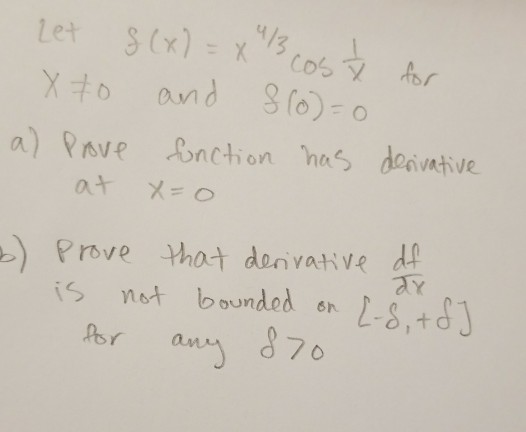 Let f(x) = x^4/3 cos 1/x for
x ≠ 0 and f(0) = 0
a) Prove function has derivative
at x = 0
b) Prove that derivative df/dx
is not bounded on [-δ, +δ]
for any δ > 0